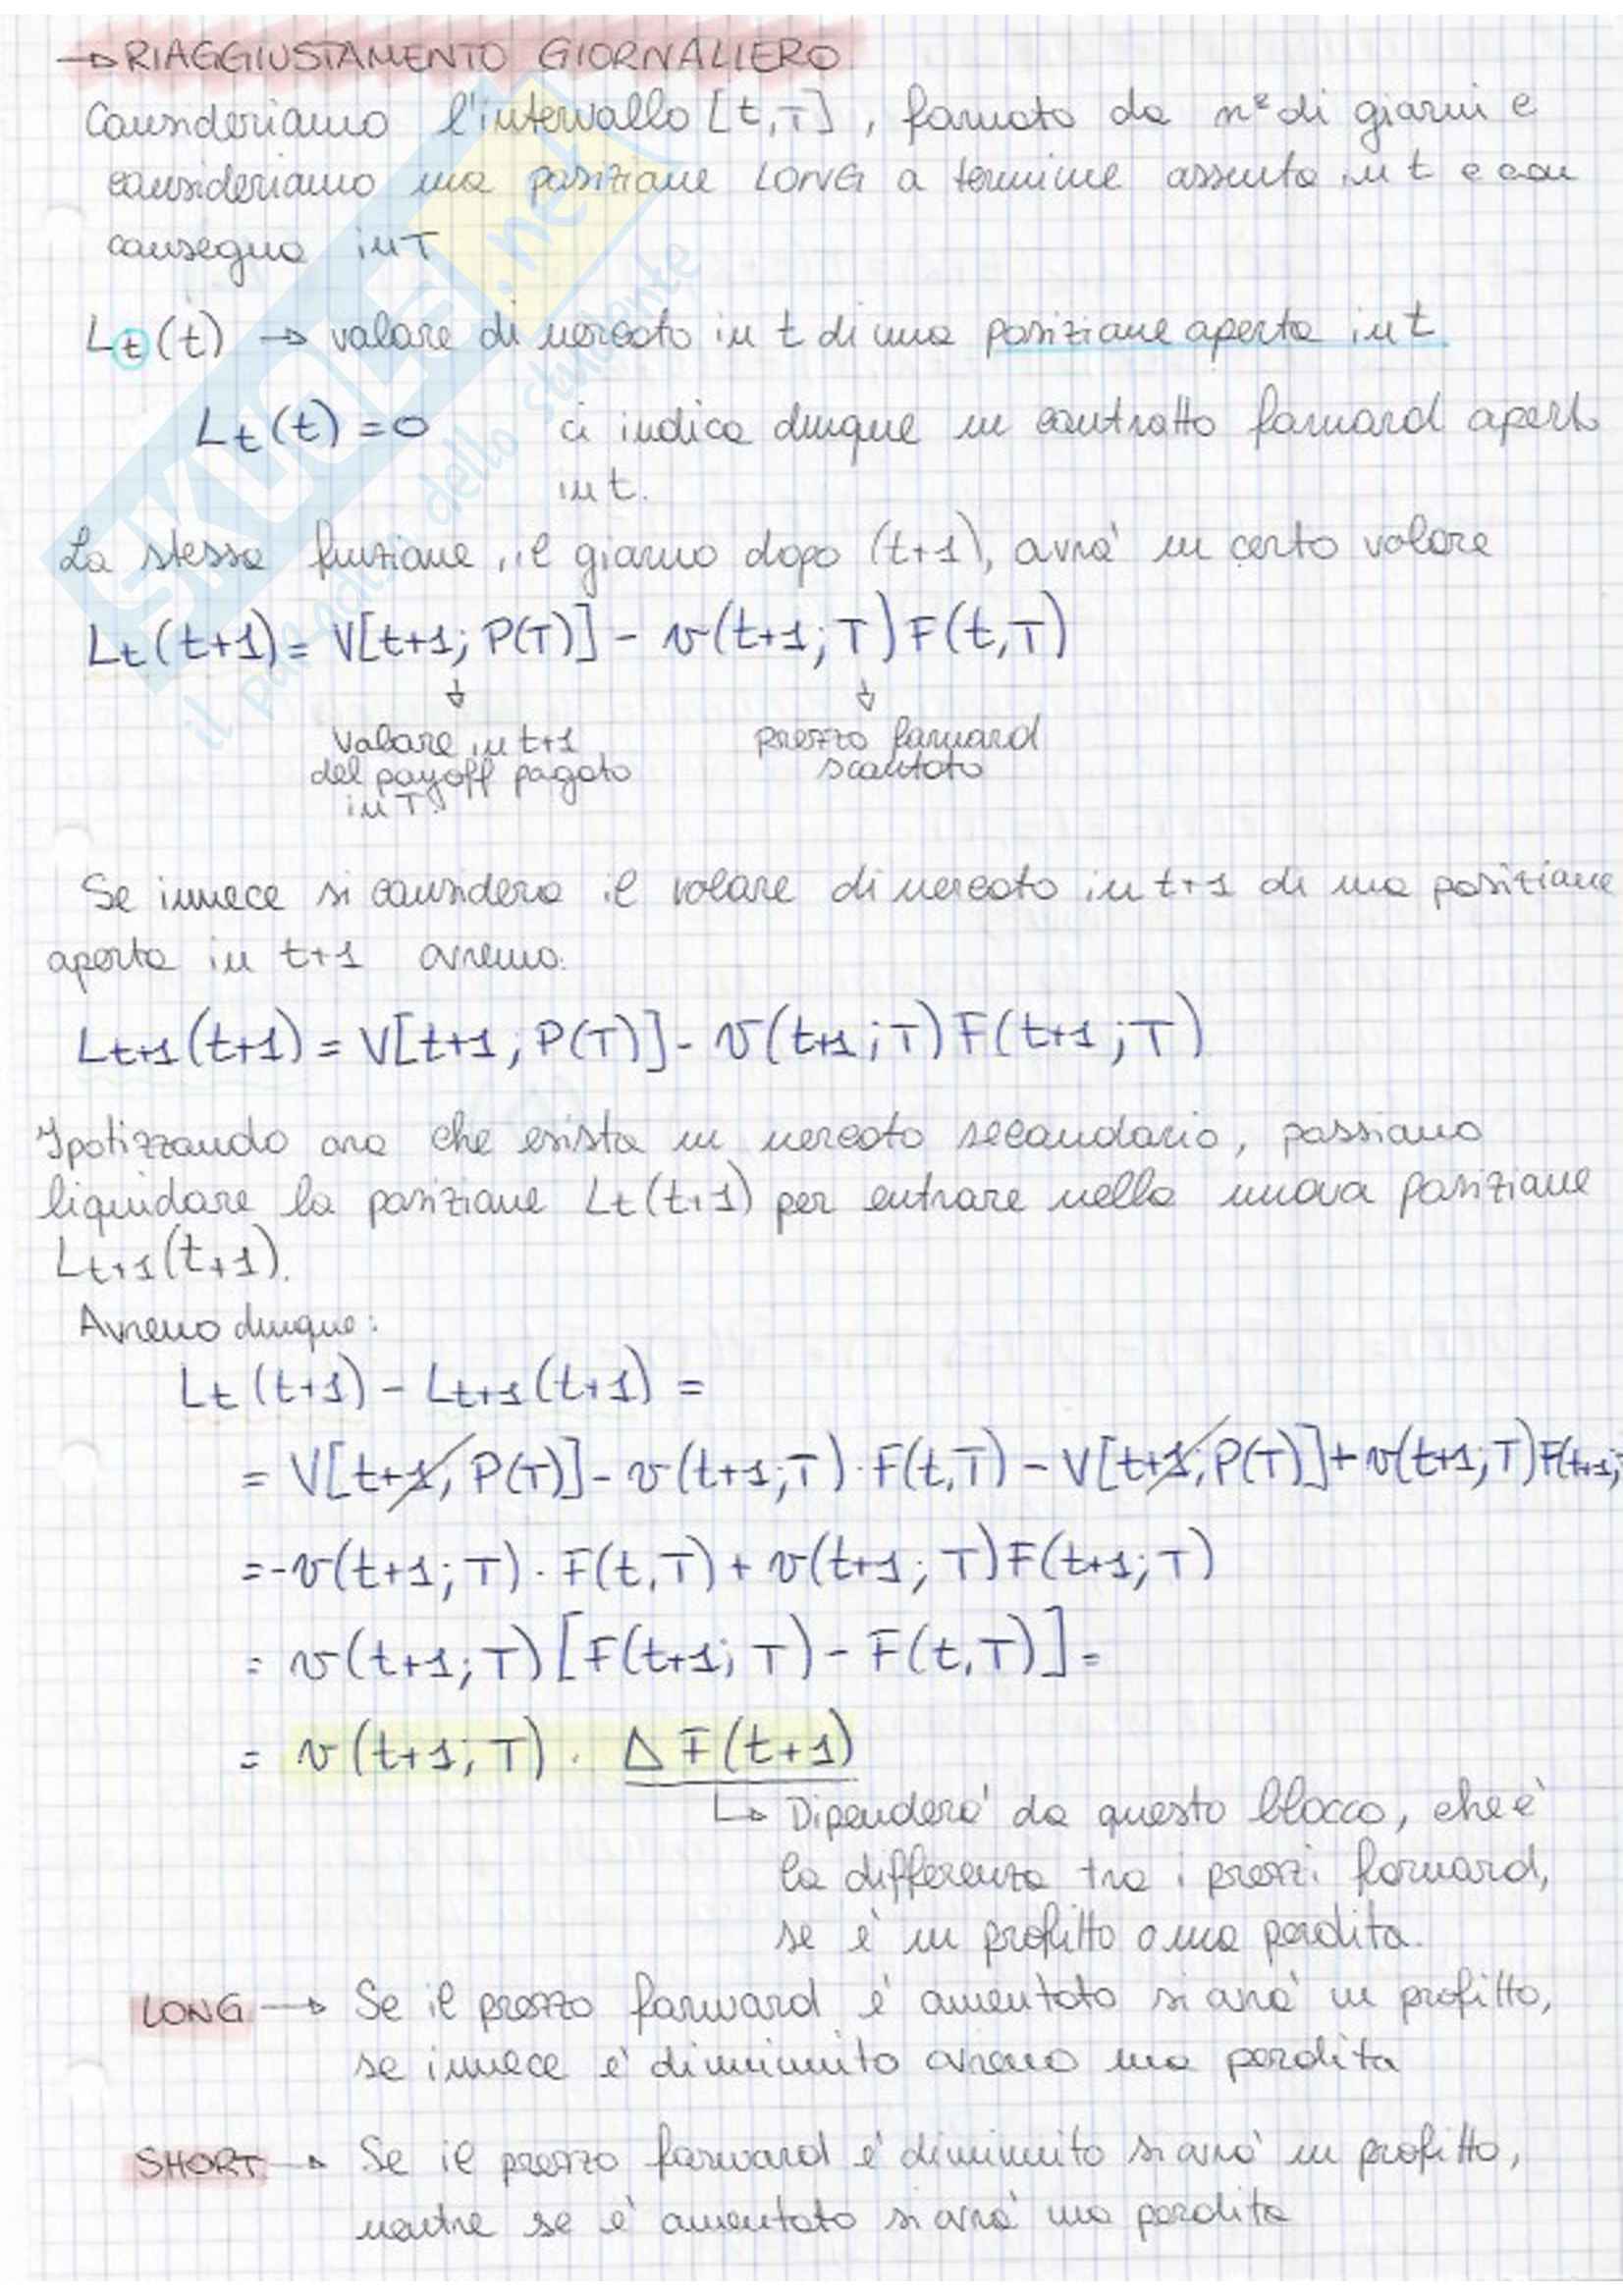 → RIAGGIUSTAMENTO GIORNALIERO
Consideriamo l'intervallo [t,T], formato da n° di giorni e
consideriamo una posizione LONG a termine assunta in t e con
consegna in T
Lt(t) → valore di mercato in t di una posizione aperta in t
Lt(t) = 0 ci indica dunque un contratto forward aperto
in t.
La stessa funzione, il giorno dopo (t+1), avrà un certo valore
Lt(t+1) = V[t+1; P(T)] - v(t+1; T) F(t,T)
↓ ↓
Valore in t+1 prezzo forward
del payoff pagato scontato
in T.
Se invece si considera il valore di mercato in t+1 di una posizione
aperta in t+1 avremo:
Lt+1(t+1) = V[t+1; P(T)] - v(t+1; T) F(t+1; T)
Ipotizzando ora che esista un mercato secondario, possiamo
liquidare la posizione Lt(t+1) per entrare nella nuova posizione
Lt+1(t+1).
Avremo dunque:
Lt(t+1) - Lt+1(t+1) =
= V[t+1; P(T)] - v(t+1; T) · F(t,T) - V[t+1; P(T)] + v(t+1; T) F(t+1;
= -v(t+1; T) · F(t,T) + v(t+1; T) F(t+1; T)
= v(t+1; T) [F(t+1; T) - F(t,T)] =
= v(t+1; T) · Δ F(t+1)
↳ Dipenderà da questo blocco, che è
la differenza tra i prezzi forward,
se è un profitto o una perdita.
LONG → Se il prezzo forward è aumentato si avrà un profitto,
se invece è diminuito avremo una perdita
SHORT → Se il prezzo forward è diminuito si avrà un profitto,
mentre se è aumentato si avrà una perdita
SKUOLA.net
il paradiso dello studente